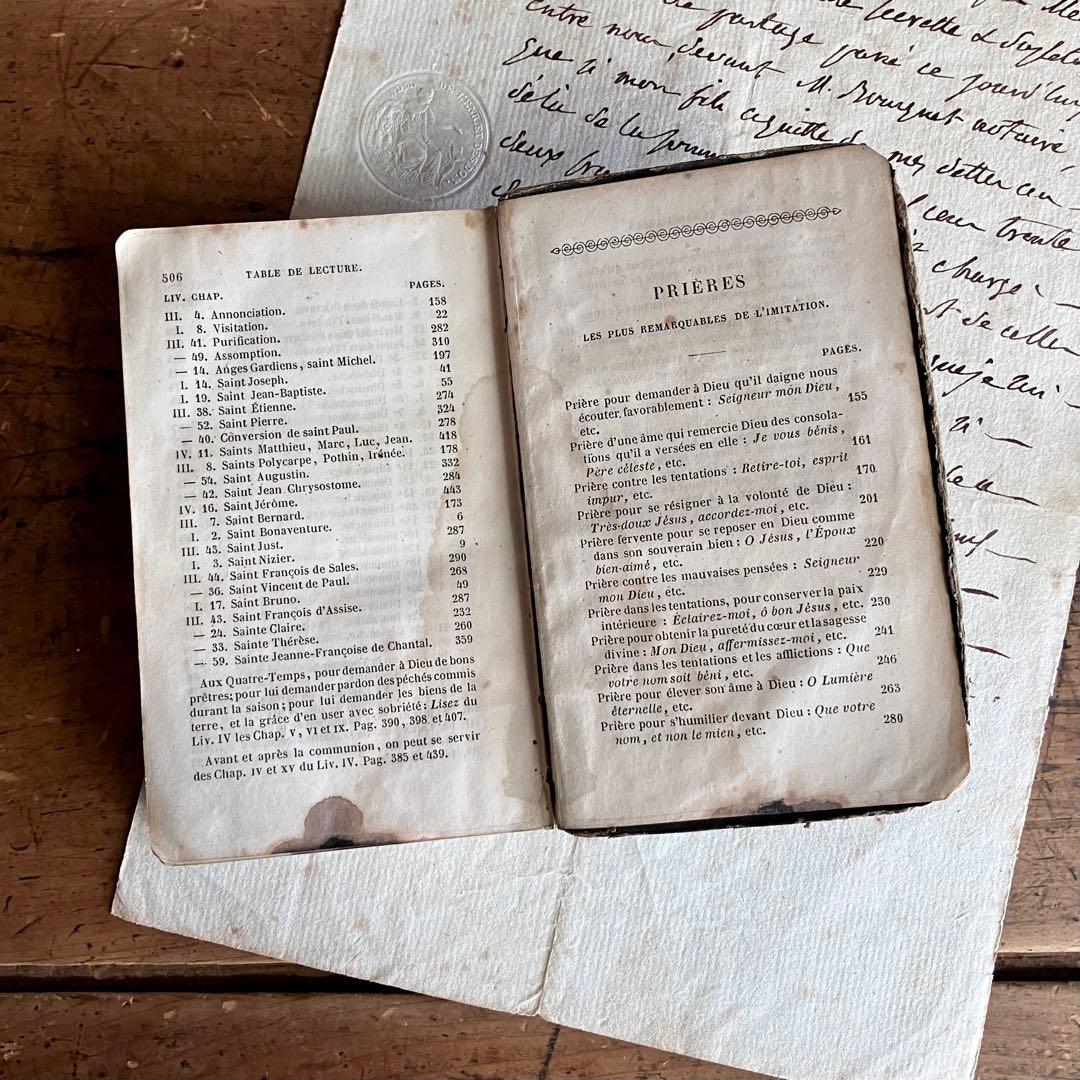 de partage passé ce jourd'huy
entre nous devant M. Bourguet notaire,
que si mon fils
deux
trente
charge
et de celle
506
TABLE DE LECTURE.
LIV. CHAP. PAGES.
III. 4. Annonciation. 158
I. 8. Visitation. 22
III. 41. Purification. 282
— 49. Assomption. 310
— 14. Anges Gardiens, saint Michel. 197
I. 14. Saint Joseph. 41
I. 19. Saint Jean-Baptiste. 55
III. 38. Saint Étienne. 274
— 52. Saint Pierre. 324
— 40. Conversion de saint Paul. 278
IV. 11. Saints Matthieu, Marc, Luc, Jean. 418
III. 8. Saints Polycarpe, Pothin, Irénée. 178
— 54. Saint Augustin. 332
— 42. Saint Jean Chrysostome. 284
IV. 16. Saint Jérôme. 443
III. 7. Saint Bernard. 173
I. 2. Saint Bonaventure. 6
III. 43. Saint Just. 287
I. 3. Saint Nizier. 9
III. 44. Saint François de Sales. 290
— 36. Saint Vincent de Paul. 268
I. 17. Saint Bruno. 49
III. 43. Saint François d'Assise. 287
— 24. Sainte Claire. 232
— 33. Sainte Thérèse. 260
— 59. Sainte Jeanne-Françoise de Chantal. 359
Aux Quatre-Temps, pour demander à Dieu de bons
prêtres; pour lui demander pardon des péchés commis
durant la saison; pour lui demander les biens de la
terre, et la grâce d'en user avec sobriété: Lisez du
Liv. IV les Chap. V, VI et IX. Pag. 390, 398 et 407.
Avant et après la communion, on peut se servir
des Chap. IV et XV du Liv. IV. Pag. 385 et 439.
PRIÈRES
LES PLUS REMARQUABLES DE L'IMITATION.
PAGES.
Prière pour demander à Dieu qu'il daigne nous
écouter favorablement : Seigneur mon Dieu,
etc. 155
Prière d'une âme qui remercie Dieu des consola-
tions qu'il a versées en elle : Je vous bénis,
Père céleste, etc. 161
Prière contre les tentations : Retire-toi, esprit
impur, etc. 170
Prière pour se résigner à la volonté de Dieu :
Très-doux Jésus, accordez-moi, etc. 201
Prière fervente pour se reposer en Dieu comme
dans son souverain bien : O Jésus, l'Époux
bien-aimé, etc. 220
Prière contre les mauvaises pensées : Seigneur
mon Dieu, etc. 229
Prière dans les tentations, pour conserver la paix
intérieure : Eclairez-moi, ô bon Jésus, etc. 230
Prière pour obtenir la pureté du cœur et la sagesse
divine : Mon Dieu, affermissez-moi, etc. 241
Prière dans les tentations et les afflictions : Que
votre nom soit béni, etc. 246
Prière pour élever son âme à Dieu : O Lumière
éternelle, etc. 263
Prière pour s'humilier devant Dieu : Que votre
nom, et non le mien, etc. 280